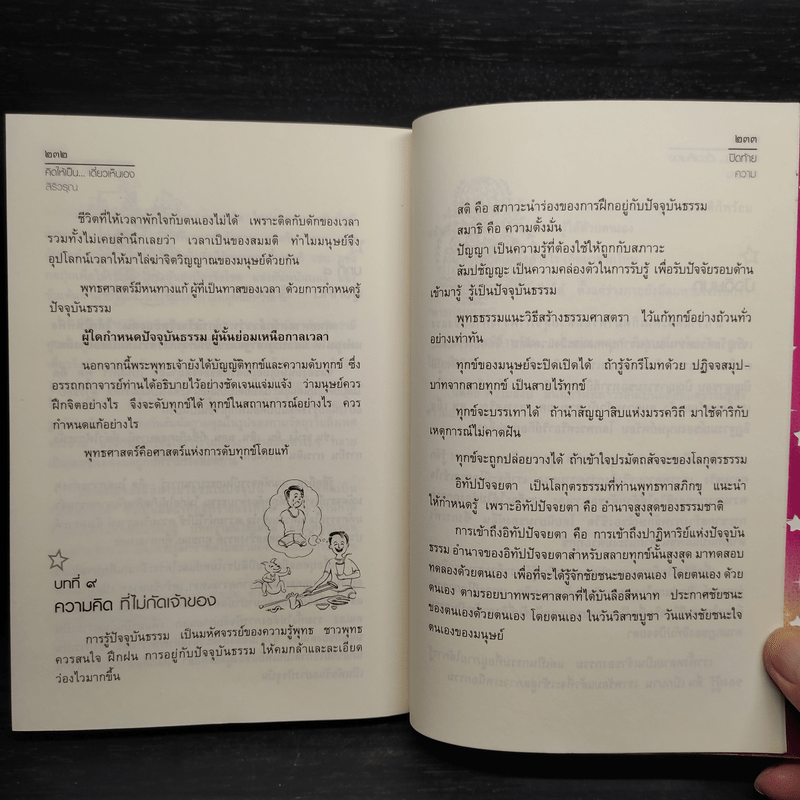 ๒๓๒
คิดให้เป็น... เดี๋ยวเห็นเอง
สิริวรุณ
ชีวิตที่ให้เวลาพักใจกับตนเองไม่ได้ เพราะติดกับดักของเวลา
รวมทั้งไม่เคยสำนึกเลยว่า เวลาเป็นของสมมติ ทำไมมนุษย์จึง
อุปโลกน์เวลาให้มาไล่ฆ่าจิตวิญญาณของมนุษย์ด้วยกัน
พุทธศาสตร์มีหนทางแก้ ผู้ที่เป็นทาสของเวลา ด้วยการกำหนดรู้
ปัจจุบันธรรม
ผู้ใดกำหนดปัจจุบันธรรม ผู้นั้นย่อมเหนือกาลเวลา
นอกจากนี้พระพุทธเจ้ายังได้บัญญัติทุกข์และความดับทุกข์ ซึ่ง
อรรถกถาจารย์ท่านได้อธิบายไว้อย่างชัดเจนแจ่มแจ้ง ว่ามนุษย์ควร
ฝึกจิตอย่างไร จึงจะดับทุกข์ได้ ทุกข์ในสถานการณ์อย่างไร ควร
กำหนดแก้อย่างไร
พุทธศาสตร์คือศาสตร์แห่งการดับทุกข์โดยแท้
บทที่ ๙
ความคิด ที่ไม่กัดเจ้าของ
การรู้ปัจจุบันธรรม เป็นมหัศจรรย์ของความรู้พุทธ ชาวพุทธ
ควรสนใจ ฝึกฝน การอยู่กับปัจจุบันธรรม ให้คมกล้าและละเอียด
ว่องไวมากขึ้น
๒๓๓
ปิดท้าย
ความ
สติ คือ สภาวะนำร่องของการฝึกอยู่กับปัจจุบันธรรม
สมาธิ คือ ความตั้งมั่น
ปัญญา เป็นความรู้ที่ต้องใช้ให้ถูกกับสภาวะ
สัมปชัญญะ เป็นความคล่องตัวในการรับรู้ เพื่อรับปัจจัยรอบด้าน
เข้ามารู้ รู้เป็นปัจจุบันธรรม
พุทธธรรมแนะวิธีสร้างธรรมศาสตรา ไว้แก้ทุกข์อย่างถ้วนทั่ว
อย่างเท่าทัน
ทุกข์ของมนุษย์จะปิดเปิดได้ ถ้ารู้จักรีโมทด้วย ปฏิจจสมุป-
บาทจากสายทุกข์ เป็นสายไร้ทุกข์
ทุกข์จะบรรเทาได้ ถ้านำสัญญาสิบแห่งมรรควิถี มาใช้ดำริกับ
เหตุการณ์ไม่คาดฝัน
ทุกข์จะถูกปล่อยวางได้ ถ้าเข้าใจปรมัตถสัจจะของโลกุตรธรรม
อิทัปปัจจยตา เป็นโลกุตรธรรมที่ท่านพุทธทาสภิกขุ แนะนำ
ให้กำหนดรู้ เพราะอิทัปปัจจยตา คือ อำนาจสูงสุดของธรรมชาติ
การเข้าถึงอิทัปปัจจยตา คือ การเข้าถึงปาฏิหาริย์แห่งปัจจุบัน
ธรรม อำนาจของอิทัปปัจจยตาสำหรับสลายทุกข์นั้นสูงสุด มาทดสอบ
ทดลองด้วยตนเอง เพื่อที่จะได้รู้จักชัยชนะของตนเอง โดยตนเอง ด้วย
ตนเอง ตามรอยบาทพระศาสดาที่ได้บันลือสีหนาท ประกาศชัยชนะ
ของตนเองด้วยตนเอง โดยตนเอง ในวันวิสาขบูชา วันแห่งชัยชนะใจ
ตนเองของมนุษย์